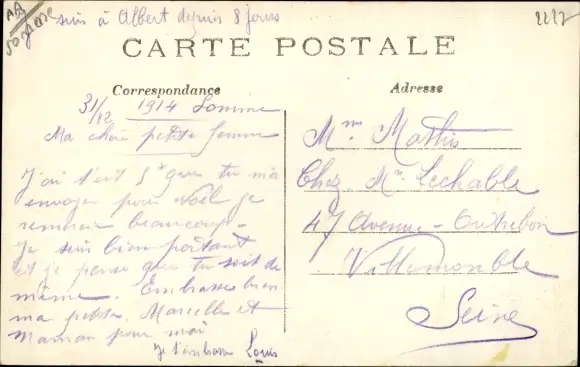 suis à Albert depuis 8 jours
CARTE POSTALE
Correspondance
31/12 1914 Somme
Ma chère petite femme
J'ai s't 5f que tu m'a
envoyer pour Noël je
remercie beaucoup.
Je suis bien portant
et je pense que tu soit de
même. Embrasse bien
ma petite Marcelle et
Maman pour moi
Je t'embrasse Louis
Adresse
Mme Mathis
Chez Mr Lechable
47 Avenue Outrebon
Villemomble
Seine